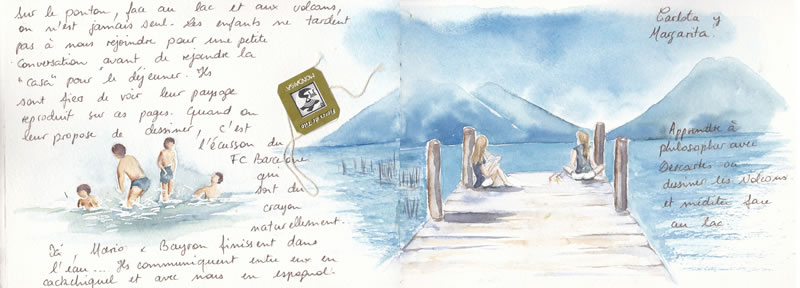 Sur le ponton, face au lac et aux volcans,
on n'est jamais seul. Les enfants ne tardent
pas à nous rejoindre pour une petite
conversation avant de rejoindre la
"casa" pour le déjeuner. Ils
sont fiers de voir leur paysage
reproduit sur ces pages. Quand on
leur propose de dessiner, c'est
l'écusson du
FC Barcelone
qui
sort du
crayon
naturellement...
Ici, Mario & Bayron finissent dans
l'eau... Ils communiquent entre eux en
cackchiquel et avec nous en espagnol.
Carlota y
Margarita.
Apprendre à
philosopher avec
Descartes ou
dessiner les volcans
et méditer face
au lac.